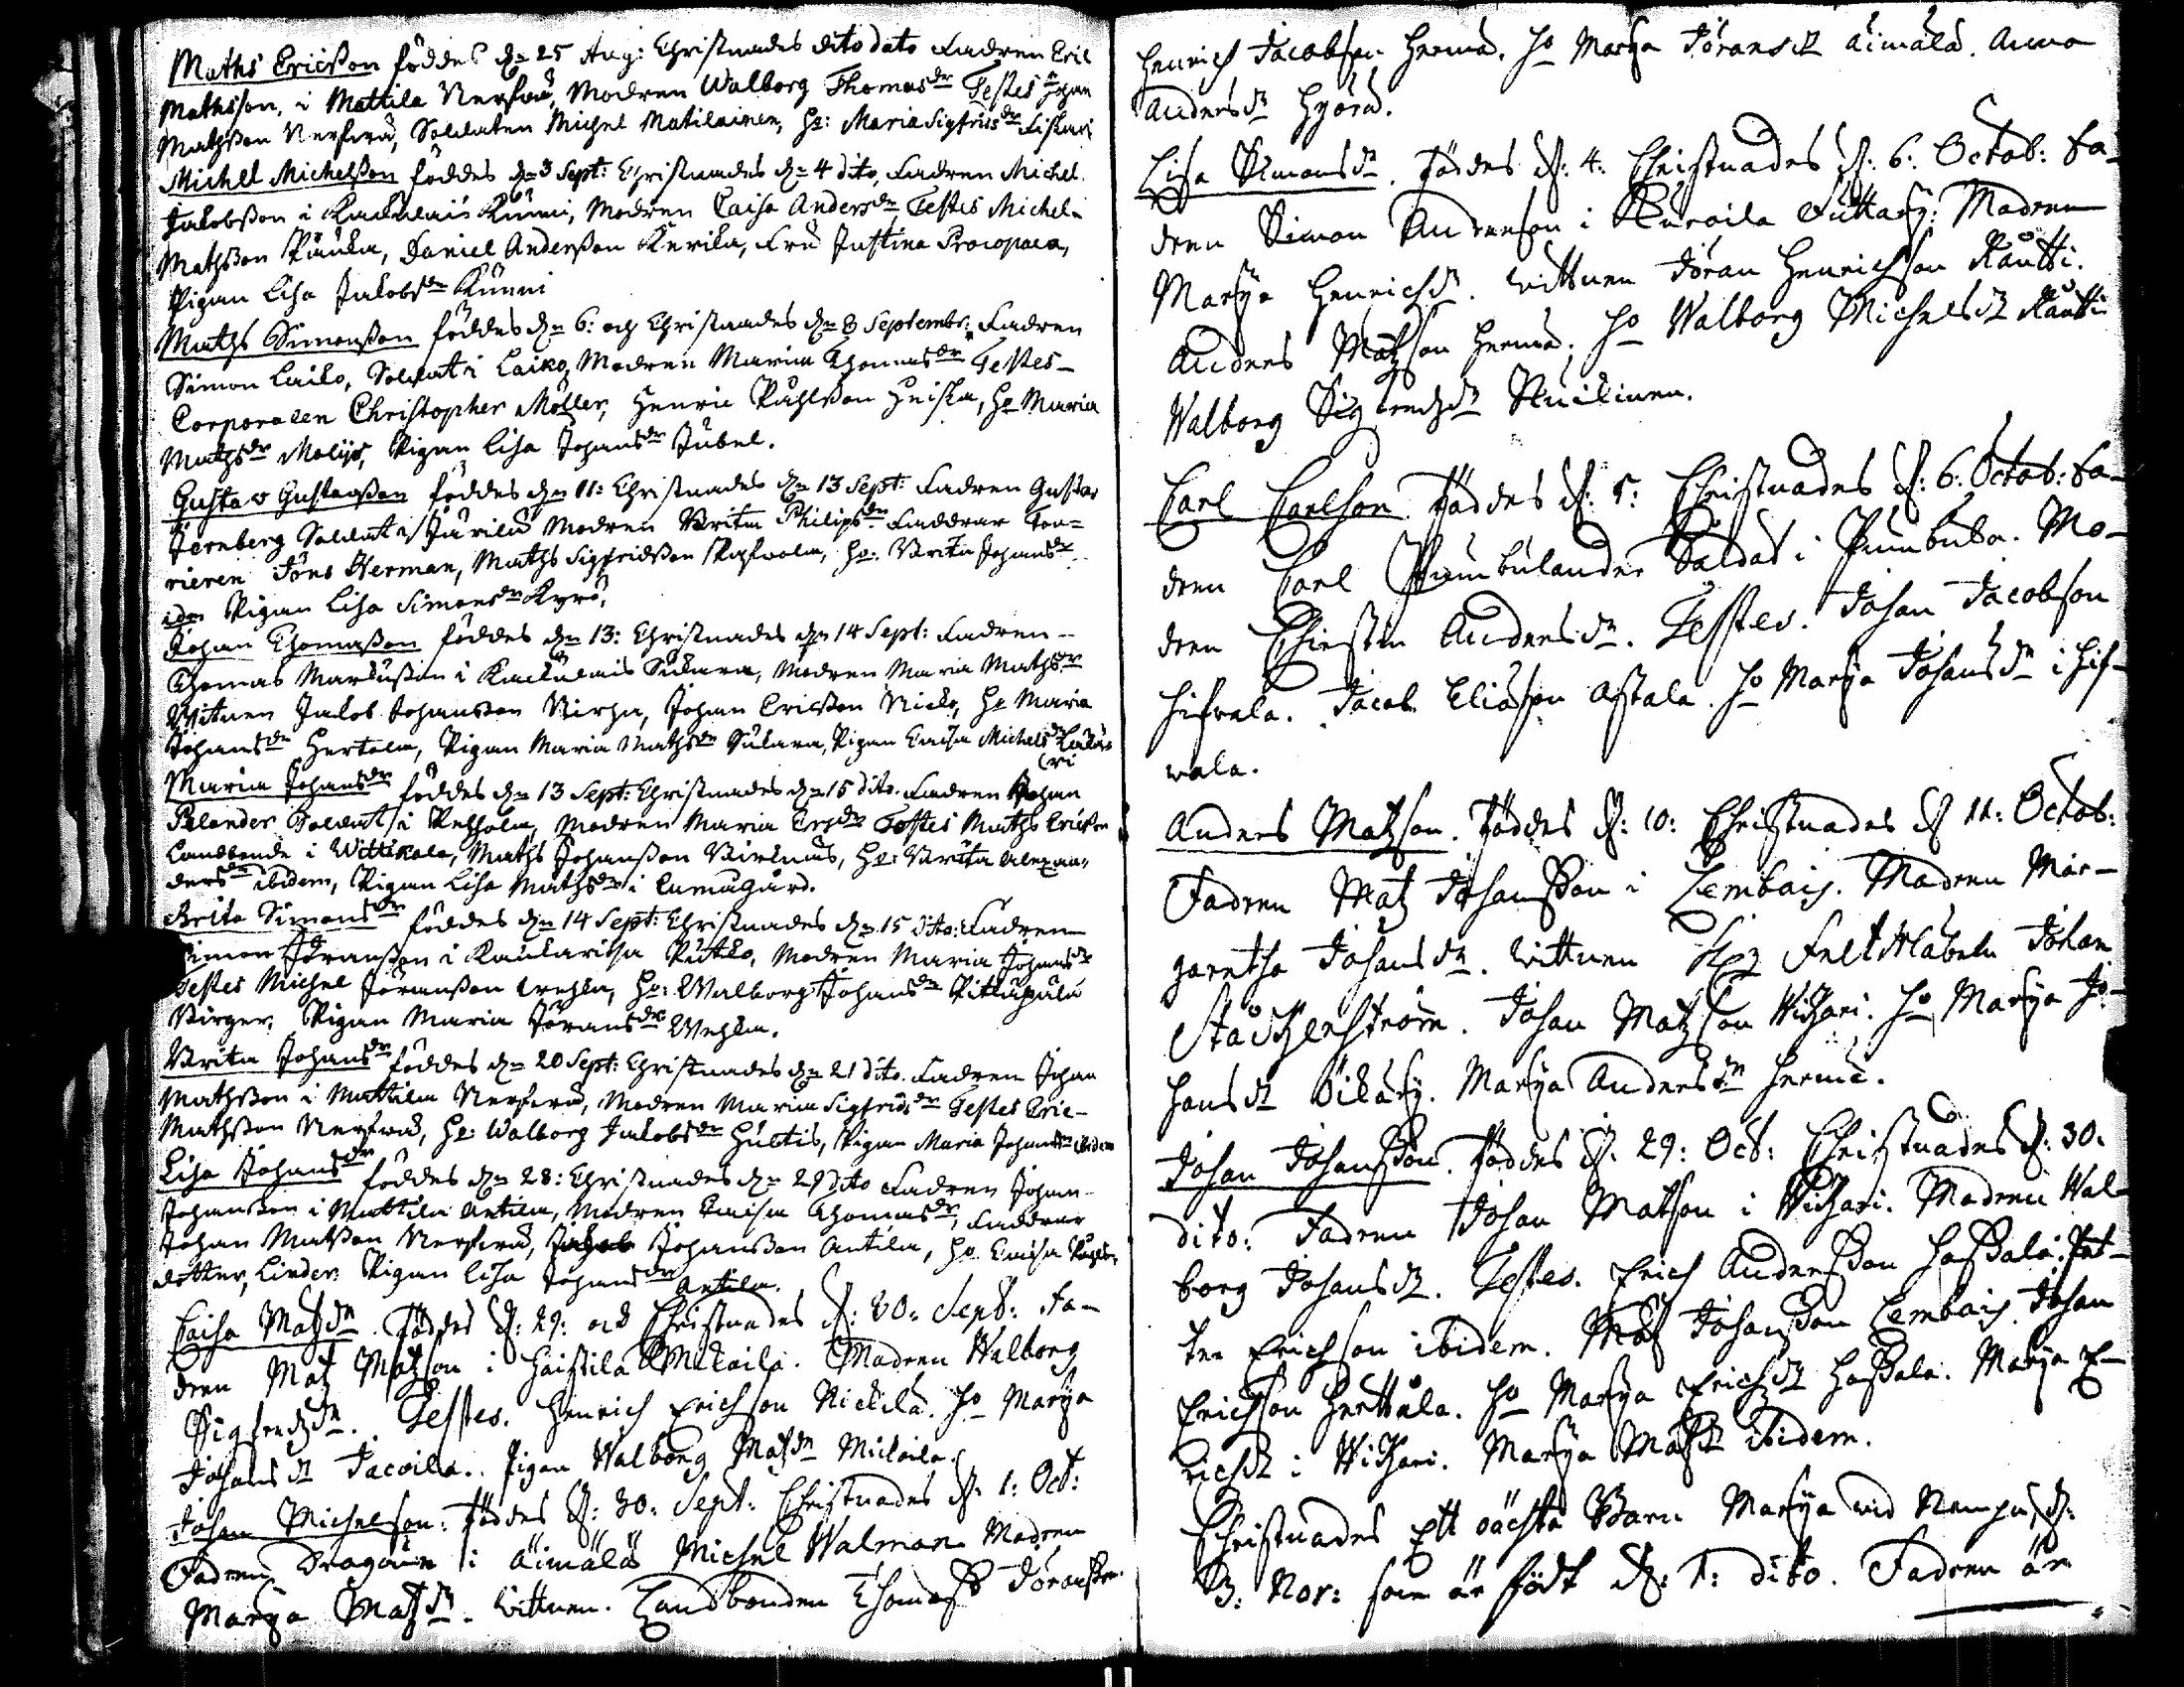 Maths Ericsson föddes dn 25 Aug: Christnades dito dato Fadren Eric
Mathsson, i Mattila Nersferd, Modren Walborg Thomasdr Testes Johan
Mathsson Nersferd, Soldaten Michel Matilainen, Hr: Maria Sigfridsdr
Michel Michelsson föddes dn 3 Sept: Christnades dn 4 dito, Fadren Michel
Jakobsson i Kackulais Kunni, Modren Caisa Andersdr Testes Michel
Mathsson Pauka, Daniel Andersson Kerika, Fru Justina Procopaea,
Pigan Lisa Jakobsdr Kunni
Maths Simonsson föddes dn 6: och Christnades dn 8 Septembr: Fadren
Simon Laiko, Soldat i Laiko, Modren Maria Thomasdr Testes
Corporalen Christopher Möller, Henric Påhlsson Heiska, Hr Maria
Mathsdr Moliis, Pigan Lisa Johansdr Jubel.
Gustav Gustavsson föddes dn 11: Christnades dn 13 Sept: Fadren Gustav
Jernberg Soldat i Jurila Modren Brita Philipsdr Faddrar
rieren Jöns Herman, Maths Sigfridsson, Hr: Brita Johansdr
idem Pigan Lisa Simonsdr Kyrö,
Johan Thomasson föddes dn 13: Christnades dn 14 Sept: Fadren
Thomas Markusson i Kackulais Sukura, Modren Maria Mathsdr
Witnen Jakob Johansson Wirha, Johan Ericsson Nicko, Hr Maria
Johansdr Hertola, Pigan Maria Mathsdr Sukura, Pigan Caisa Michelsdr
Maria Johansdr föddes dn 13 Sept: Christnades dn 15 dito. Fadren Johan
Pelander Soldat i Pelhola, Modren Maria Testes Maths Ericsson
Landbonde i Wittikala, Maths Johansson, Hr: Brita Alexan-
dersdr ibidem, Pigan Lisa Mathsdr i Cumogård.
Brita Simonsdr föddes dn 14 Sept: Christnades dn 15 dito: Fadren
Simon Jöransson i Kaukaritsa, Modren Maria Johansdr
Testes Michel Jöransson, Hr: Walborg Johansdr
Birger, Pigan Maria Jöransdr
Brita Johansdr föddes dn 20 Sept: Christnades dn 21 dito. Fadren Johan
Mathsson i Mattila Nersferd, Modren Maria Sigfridsdr Testes Eric
Mathsson Nersferd, Hr: Walborg Jakobsdr Hultis, Pigan Maria Johansdr ibidem
Lisa Johansdr föddes dn 28: Christnades dn 29 dito Fadren Johan
Johansson i Mattila Antila, Modren Caisa Thomasdr, Faddrar
Johan Matsson Nersferd, Johansson Antila, Hr Caisa
dotter, Linder Pigan Lisa Johansdr Antila.
Caisa Matsdr. Föddes d: 29: och Christnades d: 30: Sept: Fa-
dren Matz Matzson i Haistila Mickaila. Modren Walborg
Sigfredzdr. Testes. Henrich Erichson Nickila. Ho Marya
Johansdr Jacoila. Pigan Walborg Matzdr Mickaila.
Johan Michelson. Föddes d: 30: Sept: Christnades d: 1: Oct:
Fadren Dragoun i Äimälä Michel Walman Modren
Marya Matzdr. Wittnen. Landbonden Thomas Jöransson
Henrich Jacobson Herma. Ho Marya Jöransdr Äimälä. Anna
Andersdr Hyörä.
Lisa Simonsdr. Föddes d: 4: Christnades d: 6: Octob: Fa-
dren Simon Anderson i Kuroila. Modren
Marya Henrichsdr. Wittnen Jöran Henrichson Rautti.
Anders Matzson Herma. Ho Walborg Michelsdr Rautti
Walborg Sigfredzdr.
Carl Carlson. Föddes d: 5: Christnades d: 6: Octob: Fa-
dren Carl Pumbulander Soldat i Pumbula. Mo-
dren Chirstin Andersdr. Testes. Johan Jacobson
Hifwala. Jacob Eliason Astala. Ho Marya Johansdr i Hif-
wala.
Anders Matzson. Föddes d: 10: Christnades d 11: Octob:
Fadren Matz Johansson i Lembois. Modren Mar-
garetha Johansdr. Wittnen Feltskiären Johan
Stäckenström. Johan Matzson Wickari. Ho Marya Jo-
hansdr. Marya Andersdr Herma.
Johan Johansson. Föddes d: 29: Oct: Christnades d: 30.
dito: Fadren Johan Matson i Wickari. Modren Wal-
borg Johansdr. Testes. Erich Andersson Hassala. Pet-
ter Erichson ibidem. Mats Johansson Lembois. Johan
Erichson Herttala. Ho Marya Erichsdr Hassala. Marya E-
richsdr i Wickari. Marya Matsdr ibidem.
Christnades Ett oächta Barn Marya wid Nampn, d:
3: Nov: som är födt d: 1: dito. Fadren är